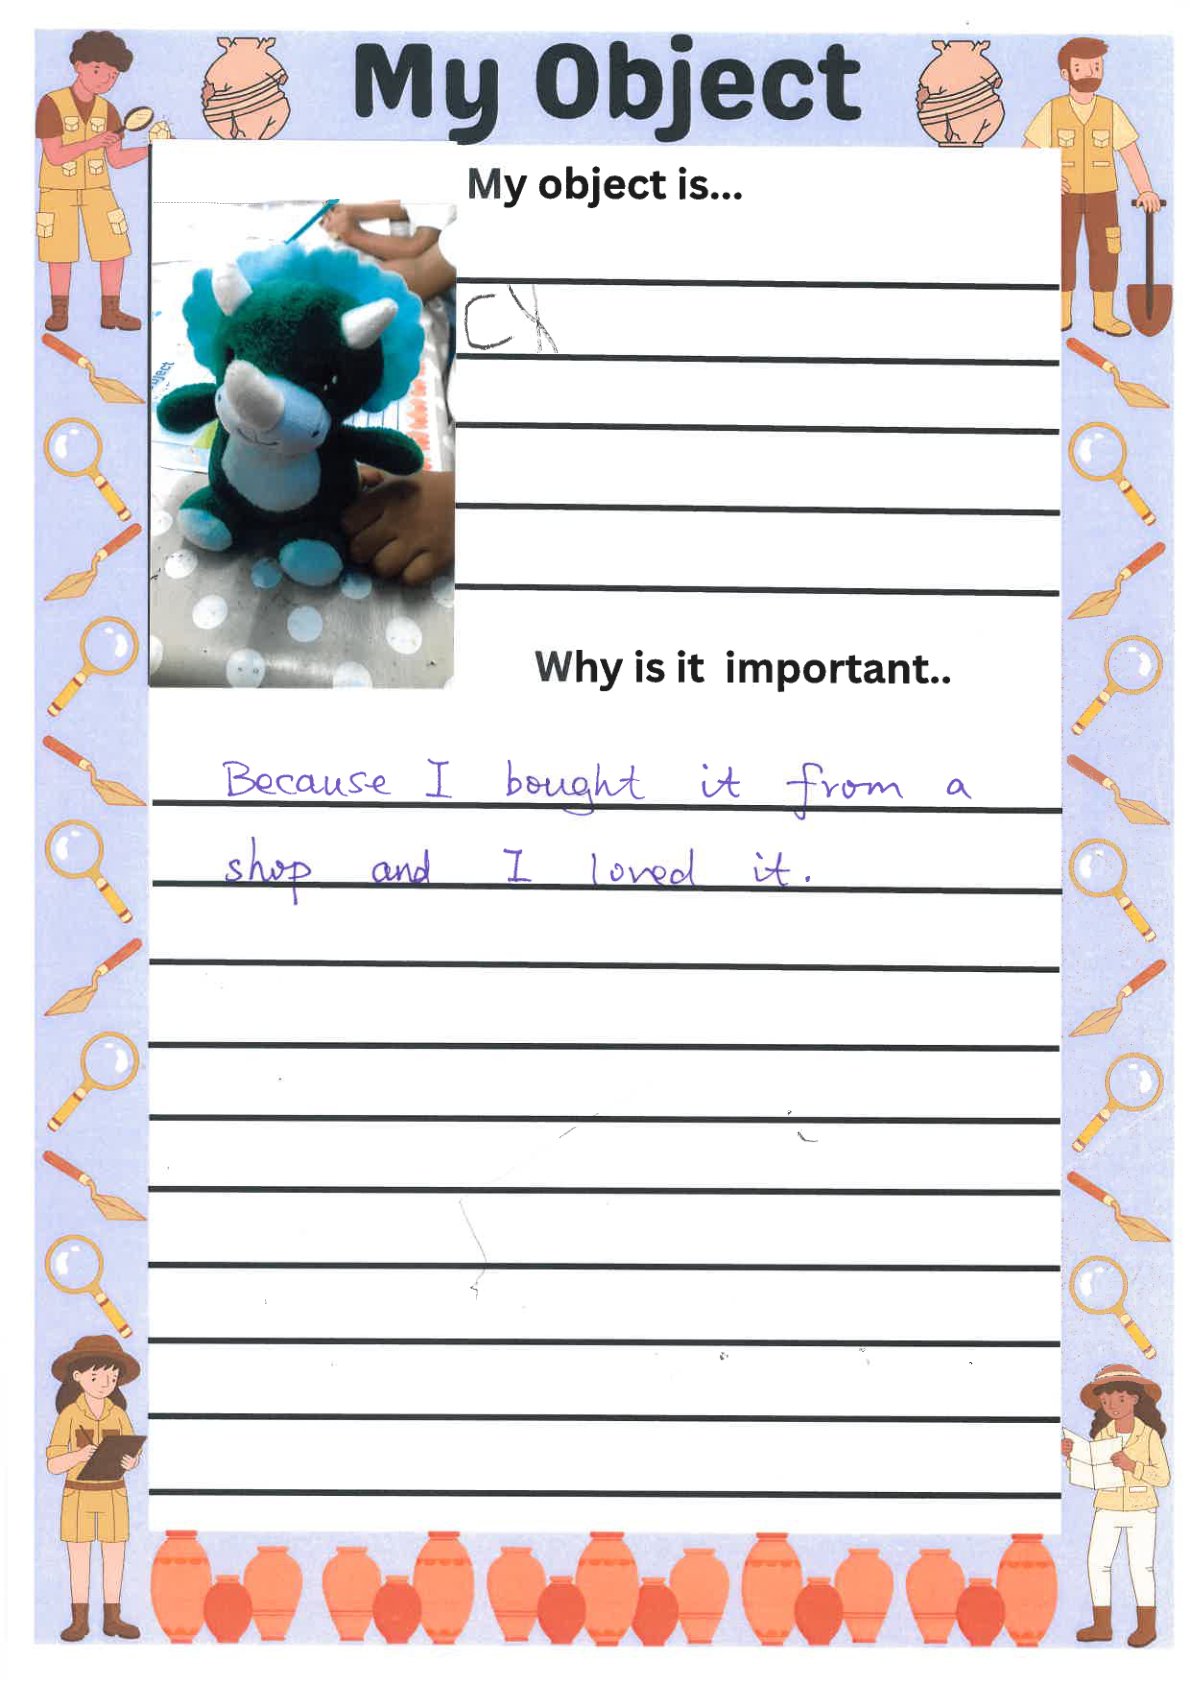 My Object
My object is...
CX
Why is it important..
Because I bought it from a
shop and I loved it.